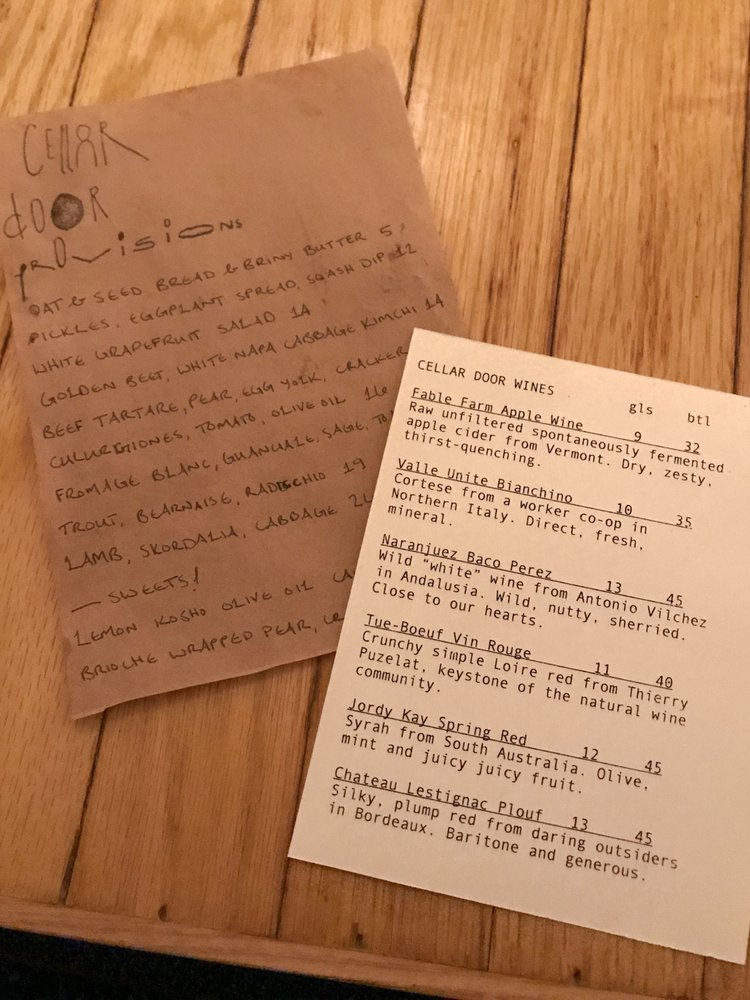 CELLAR
dOOR
PROVISIONS
OAT & SEED BREAD & BRINY BUTTER 5
PICKLES, EGGPLANT SPREAD, SQASH DIP 12
WHITE GRAPEFRUIT SALAD 14
GOLDEN BEET, WHITE NAPA CABBAGE KIMCHI 14
BEEF TARTARE, PEAR, EGG YOLK, CRACKER
CULURGIONES, TOMATO, OLIVE OIL 16
FROMAGE BLANC, GUANCIALE, SAGE,
TROUT, BEARNAISE, RADICCHIO 19
LAMB, SKORDALIA, CABBAGE
— SWEETS!
LEMON KOSHO OLIVE OIL
BRIOCHE WRAPPED PEAR,
CELLAR DOOR WINES gls btl
Fable Farm Apple Wine 9 32
Raw unfiltered spontaneously fermented
apple cider from Vermont. Dry, zesty,
thirst-quenching.
Valle Unite Bianchino 10 35
Cortese from a worker co-op in
Northern Italy. Direct, fresh,
mineral.
Naranjuez Baco Perez 13 45
Wild "white" wine from Antonio Vilchez
in Andalusia. Wild, nutty, sherried.
Close to our hearts.
Tue-Boeuf Vin Rouge 11 40
Crunchy simple Loire red from Thierry
Puzelat, keystone of the natural wine
community.
Jordy Kay Spring Red 12 45
Syrah from South Australia. Olive,
mint and juicy juicy fruit.
Chateau Lestignac Plouf 13 45
Silky, plump red from daring outsiders
in Bordeaux. Baritone and generous.